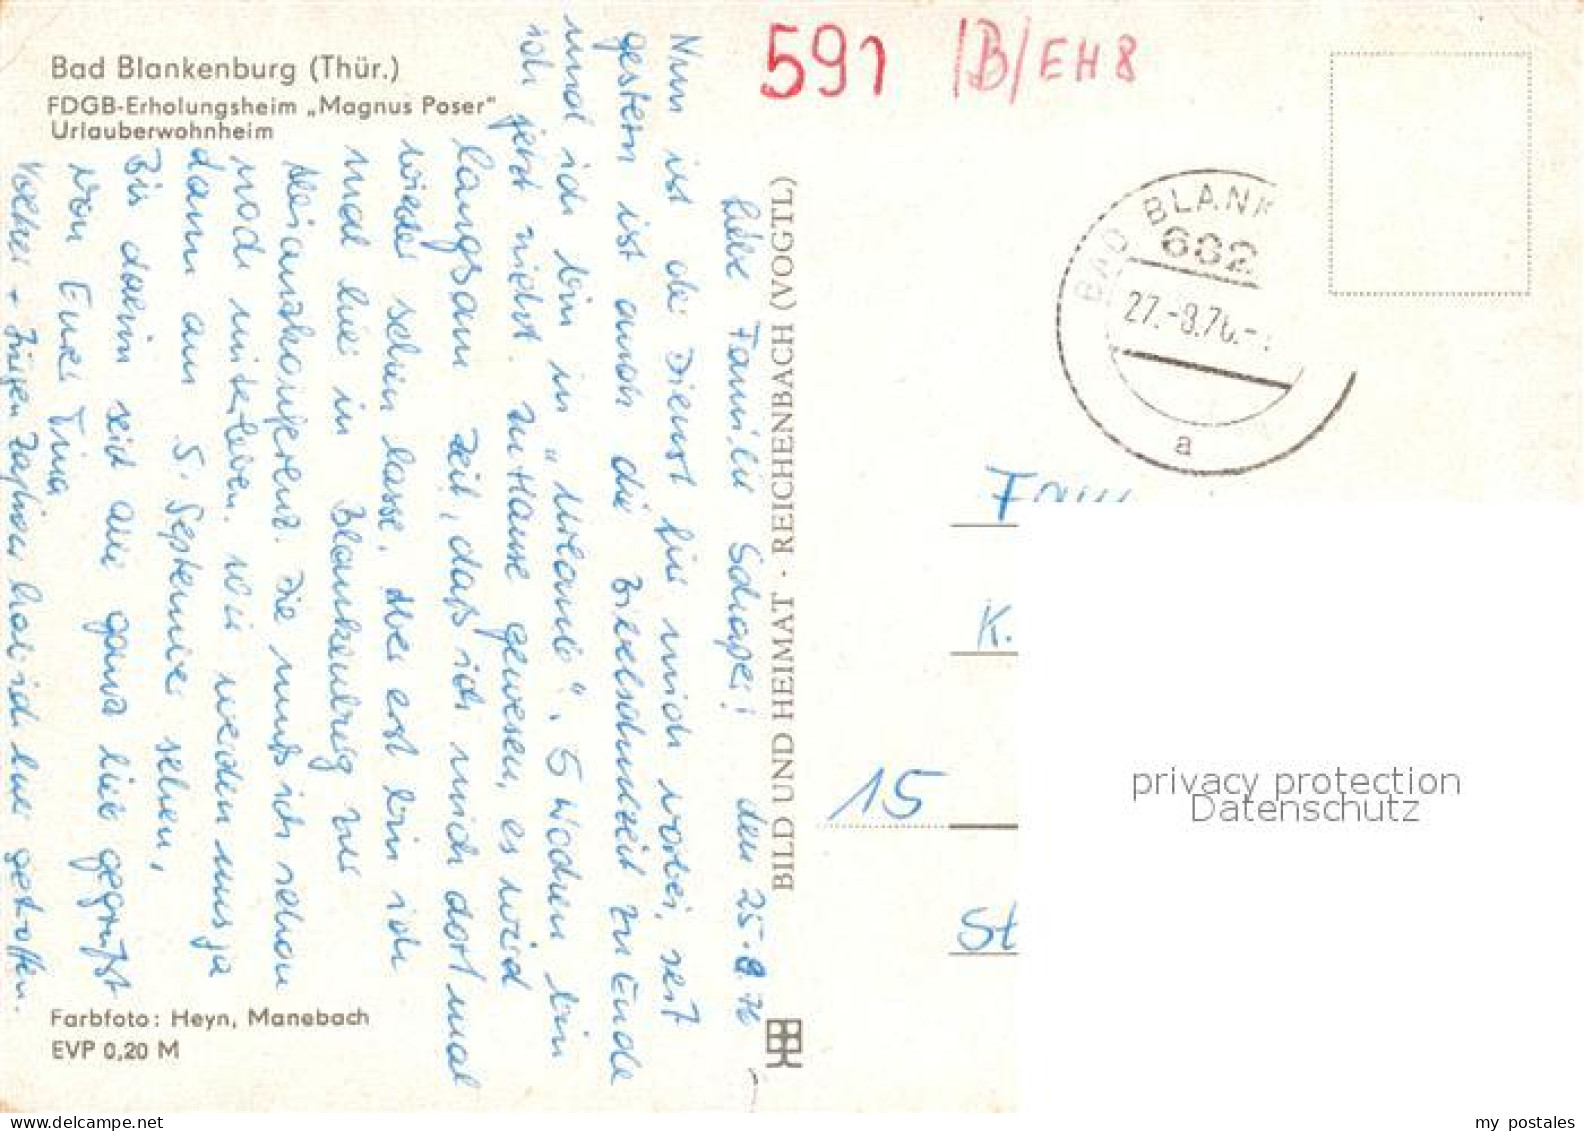 Bad Blankenburg (Thür.)
FDGB-Erholungsheim „Magnus Poser"
Urlauberwohnheim
591 /B/ EH 8
BAD BLANK
682
27.-8.76.-
a
Liebe Familie Schaper! den 25.8.76
Nun ist die Dienst für mich vorbei, seit
gestern ist auch die Bibelschulzeit zu Ende
und ich bin in „Urlaub". 5 Wochen bin
ich jetzt nicht zu Hause gewesen, es wird
langsam Zeit, daß ich mich dort mal
wieder sehen lasse. Aber erst bin ich
mal hier in Blankenburg zur
Allianzkonferenz. Die muß ich schon
noch miterleben. Wir werden uns ja
dann am 5. September sehen,
Bis dahin seid alle ganz lieb gegrüßt
von Eurer Tina
Volker + Jürgen habe ich hier getroffen.
BILD UND HEIMAT · REICHENBACH (VOGTL)
Fam
K.
15
St
privacy protection
Datenschutz
Farbfoto: Heyn, Manebach
EVP 0,20 M
my postales
www.delcampe.net